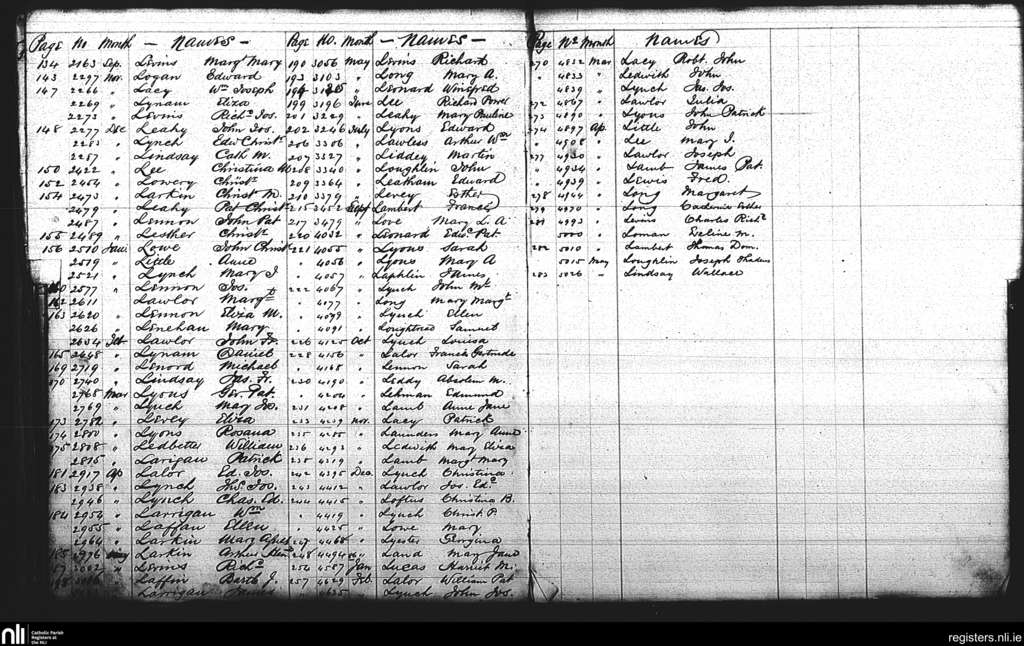 Page No Month - Names -
134 2163 Sep. Levins Margt Mary
143 2297 Nov. Logan Edward
147 2266 " Lacy Wm Joseph
2269 " Lynam Eliza
2273 " Levins Richd Jos.
148 2277 Dec Leahy John Jos.
2283 " Lynch Edwd Christr
2287 " Lindsay Cath M.
150 2422 " Lee Christina
152 2454 " Lowery Christr
154 2473 " Larkin Christ M.
2479 " Leahy Pat Christr
2487 " Lennon John Pat
155 2489 " Lesther Christr
156 2510 Jany Lowe John Christr
2519 " Little Anne
2521 " Lynch Mary J
2577 " Lennon Jos.
162 2611 " Lawlor Margt
163 2620 " Lennon Eliza M.
2626 " Lenehan Mary
2634 Feb Lawlor John Fr.
165 2648 " Lynam Daniel
169 2719 " Lenord Michael
170 2740 " Lindsay Jas. Fr.
2768 Mar Lyons Geo. Pat.
2769 " Lynch May Jos.
173 2782 " Levey Eliza
174 2800 " Lyons Rosana
175 2808 " Ledbetter William
2815 " Larrigan Patrick
181 2917 Ap Lalor Ed. Jos.
183 2938 " Lynch Thos. Jos.
2946 " Lynch Chas. Ed.
184 2954 " Larrigan Wm
2955 " Laffan Ellen
2964 " Larkin Mary Agnes
185 2976 May Larkin Arthur
" Levins Richd
Laffin Barth J.
Larrigan James
Page No. Month - Names -
190 3056 May Levins Richard
193 3103 " Long Mary A.
" Leonard Winifred
199 3196 June Lee Richard
201 3229 " Leahy Mary Pauline
202 3246 July Lyons Edward
206 3306 " Lawless Arthur Wm
207 3327 " Liddey Martin
208 3340 " Loughlin John
209 3364 " Leatham Edward
210 3379 " Levey Esther
215 3452 Sept Lambert Francis
217 3479 " Love Mary L. A
220 4032 " Leonard Edwd Pat
221 4055 " Lyons Sarah
" 4056 " Lyons May A
" 4057 " Laphlin James
222 4067 " Lynch John
" 4077 " Long Mary Margt
" 4079 " Lynch Ellen
" 4091 " Loughtred Samuel
226 4125 Oct Lynch Louisa
228 4156 " Lalor Francis Gertrude
" 4168 " Lennon Sarah
230 4190 " Leddy Absolem M.
" 4204 " Lehman Edmund
231 4208 " Lamb Anne Jane
233 4239 Nov. Lacy Patrick
235 4285 " Launders Mary Anne
236 4293 " Ledwith May Eliza
238 4319 " Lamb Margt Mary
242 4395 Dec Lynch Christina
243 4412 " Lawlor Jos. Edd
244 4415 " Loftus Christina B.
" 4419 " Lynch Christ P.
" 4425 " Lowe Mary
247 4468 " Lyster Georgina
248 4494 " Land May Jane
254 4587 Jan Lucas Harriet M.
257 4629 Feb. Lalor William Pat
4635 Lynch John Jos.
Page No Month Names
270 4832 Mar Lacy Robt. John
" 4833 " Ledwith John
4839 " Lynch Jas. Jos.
272 4867 " Lawlor Julia
273 4890 " Lyons John Patrick
274 4897 Ap. Little John
" 4908 " Lee Mary J.
277 4930 " Lawlor Joseph
" 4934 " Lamb James Pat.
" 4939 " Lewis Fred
278 4944 " Long Margaret
279 4970 " Long Catherine Esther
281 4993 " Levins Charles Richd
5000 " Loman Eveline M.
282 5010 " Lambert Thomas Dom.
" 5015 May Loughlin Joseph Thadeus
283 5026 " Lindsay Wallace
nli Catholic Parish Registers at the NLI
registers.nli.ie